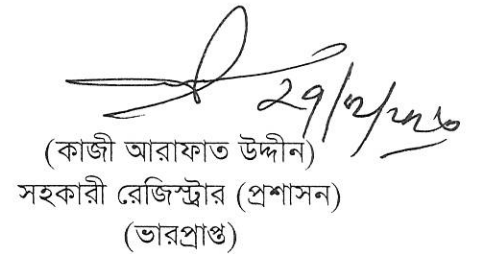 (কাজী আরাফাত উদ্দীন)
সহকারী রেজিস্ট্রার (প্রশাসন)
(ভারপ্রাপ্ত)